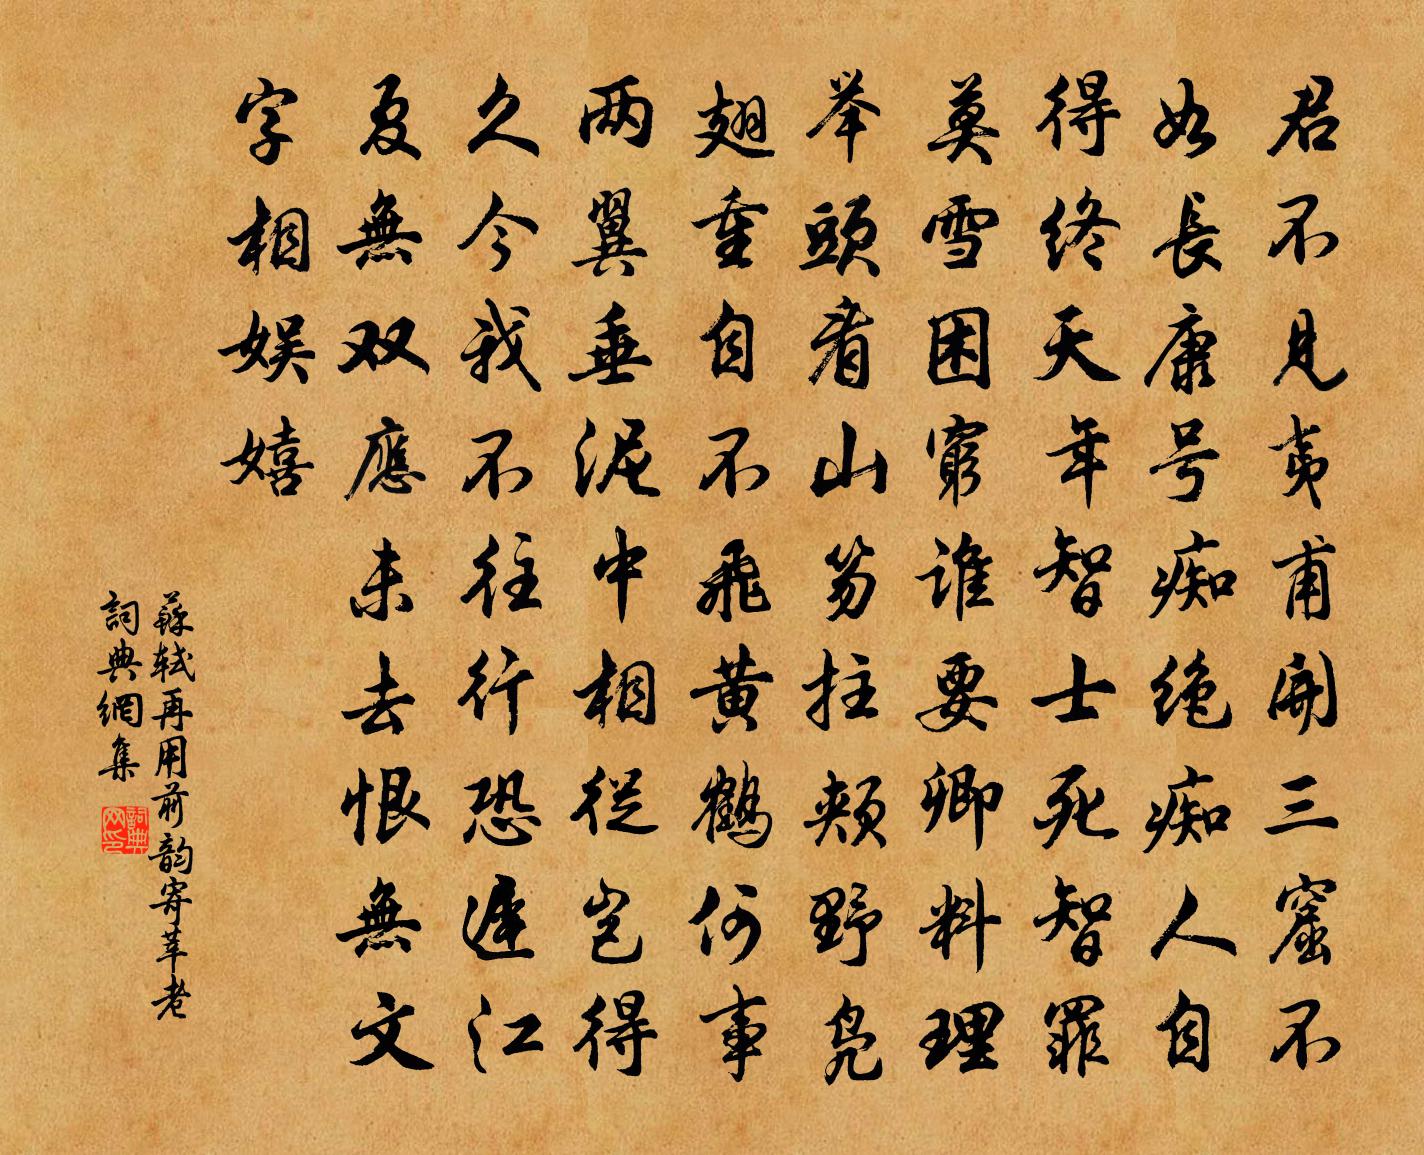 君不見夷甫開三窟不
如長康号痴絶痴人自
得終天年智士死智罪
莫雪困窮誰要卿料理
举頭看山笏拄頰野鳧
翅重自不飛黄鶴何事
两翼垂泥中相從豈得
久今我不往行恐遲江
夏無双應未去恨無文
字相娱嬉
蘇軾再用前韵寄莘老
詞典網集
詞典网印